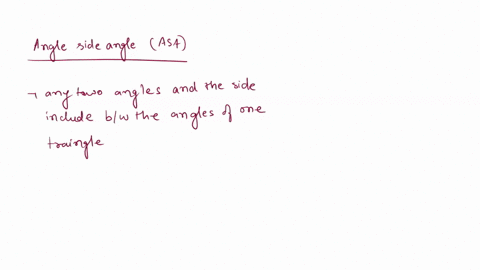 Angle side angle (ASA)
→ any two angles and the side
include b/w the angles of one
traingle